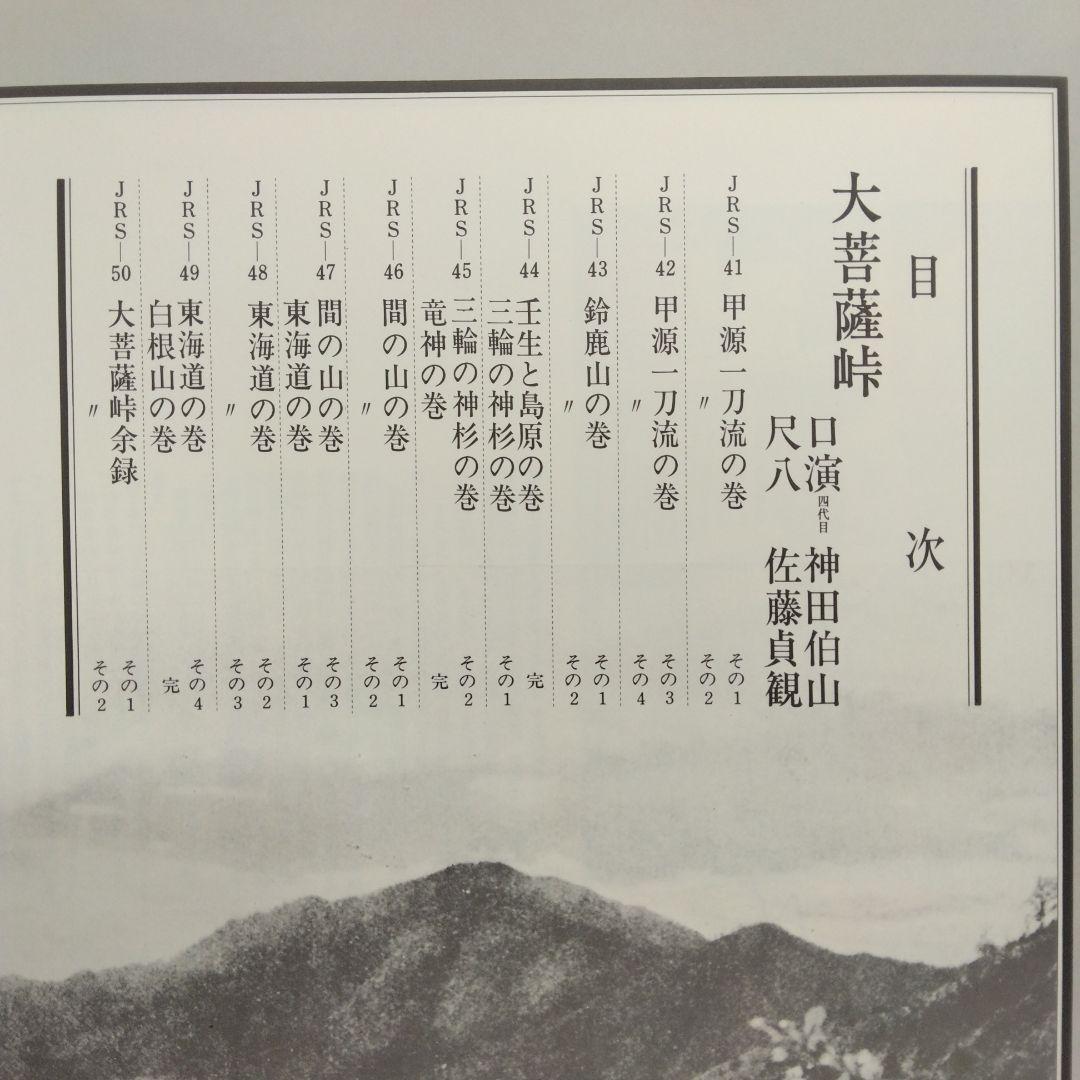 目次
大菩薩峠
口演 四代目 神田伯山
尺八 佐藤貞観
JRS—41 甲源一刀流の巻 その1
〃 その2
JRS—42 甲源一刀流の巻 その3
〃 その4
JRS—43 鈴鹿山の巻 その1
〃 その2
JRS—44 壬生と島原の巻 完
三輪の神杉の巻 その1
JRS—45 三輪の神杉の巻 その2
竜神の巻 完
JRS—46 間の山の巻 その1
〃 その2
JRS—47 間の山の巻 その3
東海道の巻 その1
JRS—48 東海道の巻 その2
〃 その3
JRS—49 東海道の巻 その4
白根山の巻 完
JRS—50 大菩薩峠余録 その1
〃 その2